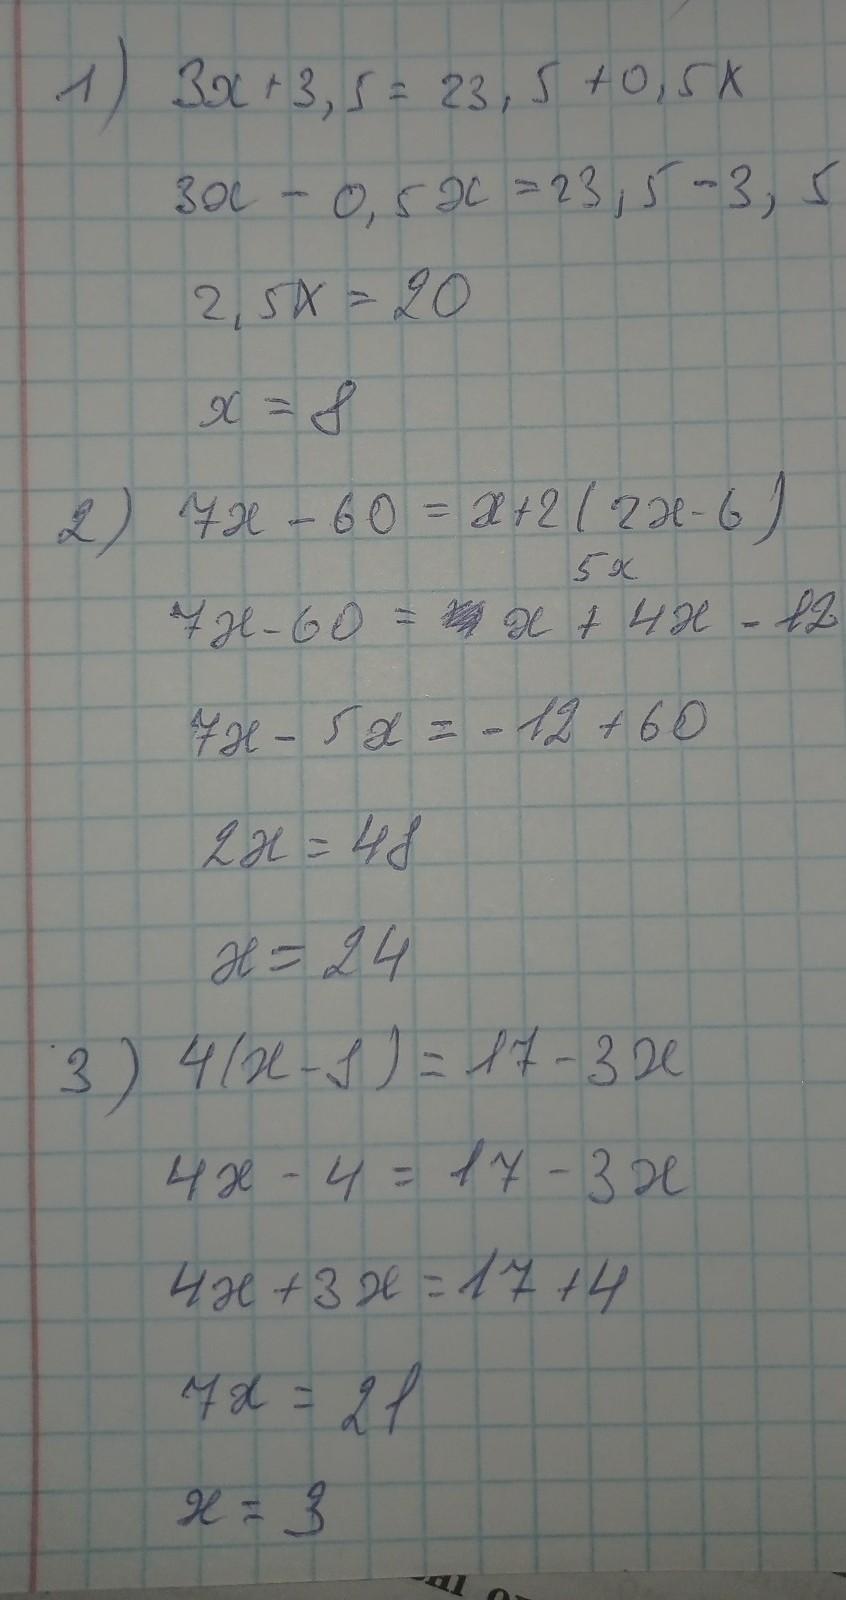 1) 3x + 3,5 = 23,5 + 0,5x
3x - 0,5x = 23,5 - 3,5
2,5x = 20
x = 8
2) 7x - 60 = x + 2(2x - 6)
5x
7x - 60 = x + 4x - 12
7x - 5x = -12 + 60
2x = 48
x = 24
3) 4(x - 1) = 17 - 3x
4x - 4 = 17 - 3x
4x + 3x = 17 + 4
7x = 21
x = 3